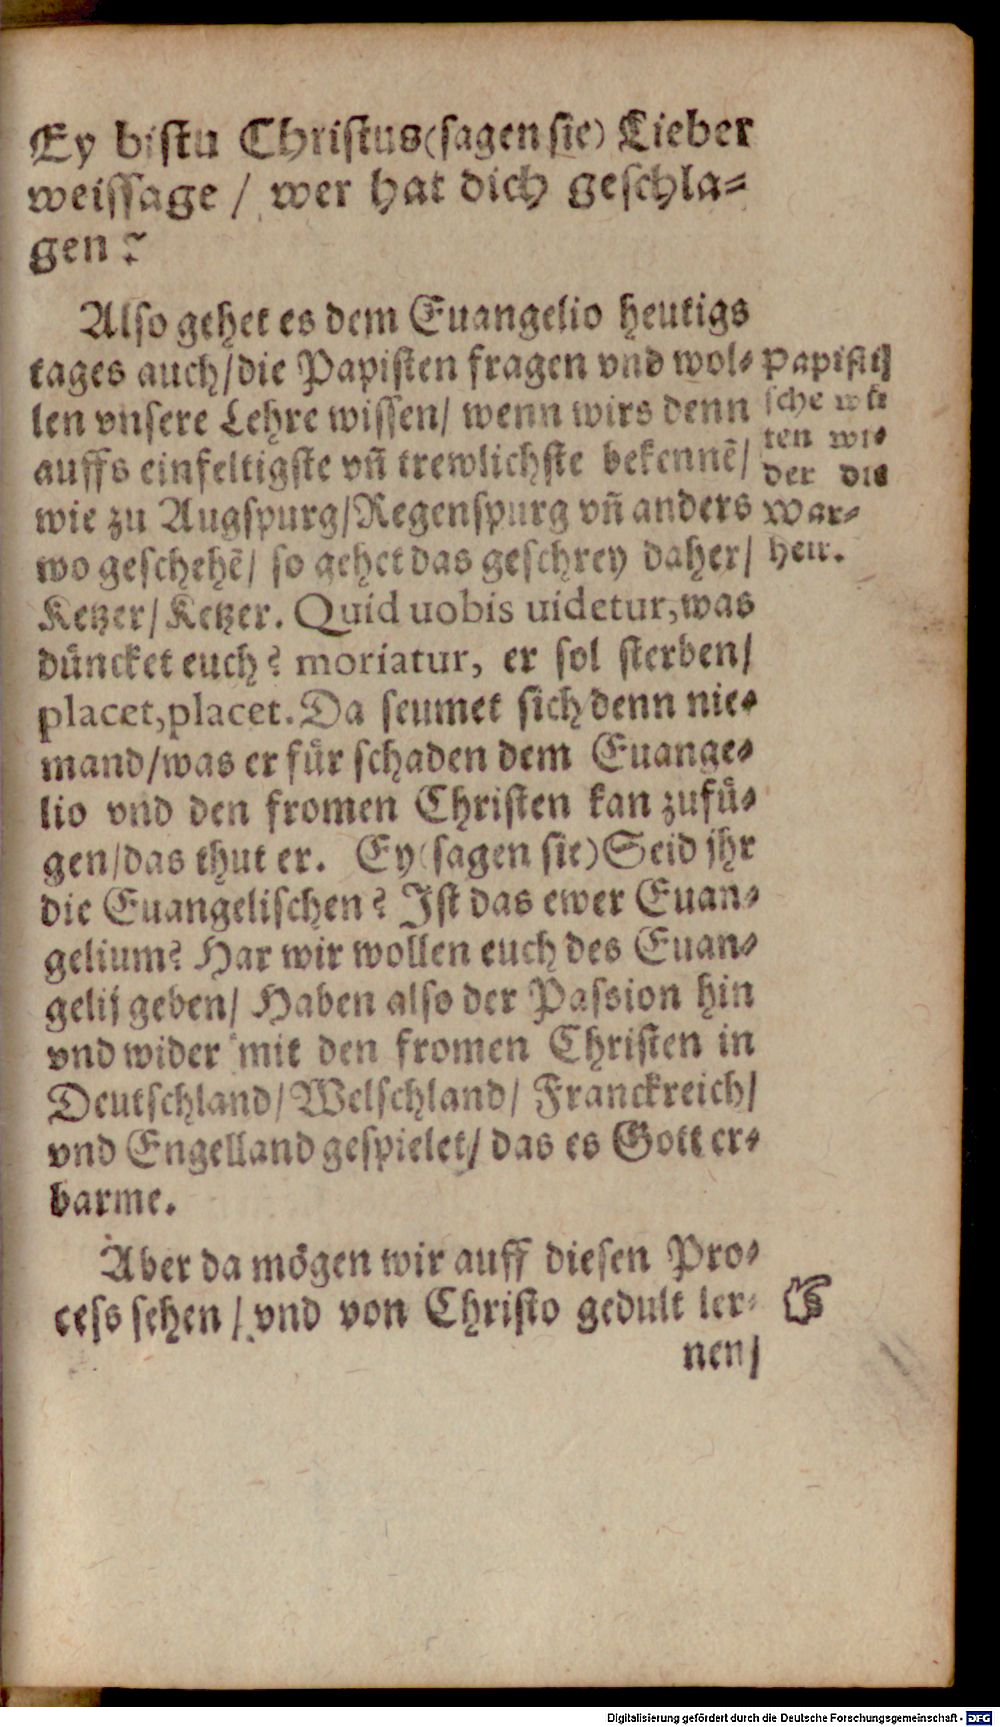 Ey bistu Christus (sagen sie) Lieber
weissage / wer hat dich geschla⸗
gen?
Also gehet es dem Euangelio heutigs
tages auch / die Papisten fragen vnd wol⸗
len vnsere Lehre wissen / wenn wirs denn
auffs einfeltigste vñ trewlichste bekennẽ /
wie zu Augspurg / Regenspurg vñ anders
wo geschehẽ / so gehet das geschrey daher /
Ketzer / Ketzer. Quid uobis uidetur, was
düncket euch? moriatur, er sol sterben /
placet, placet. Da seumet sich denn nie⸗
mand / was er für schaden dem Euange⸗
lio vnd den fromen Christen kan zufü⸗
gen / das thut er. Ey (sagen sie) Seid jhr
die Euangelischen? Ist das ewer Euan⸗
gelium? Har wir wollen euch des Euan⸗
gelij geben / Haben also der Passion hin
vnd wider mit den fromen Christen in
Deutschland / Welschland / Franckreich /
vnd Engelland gespielet / das es Gott er⸗
barme.
Aber da mögen wir auff diesen Pro⸗
cess sehen / vnd von Christo gedult ler⸗
nen /
Papisti
sche wü
ten wi⸗
der die
War⸗
heit.
Digitalisierung gefördert durch die Deutsche Forschungsgemeinschaft - DFG